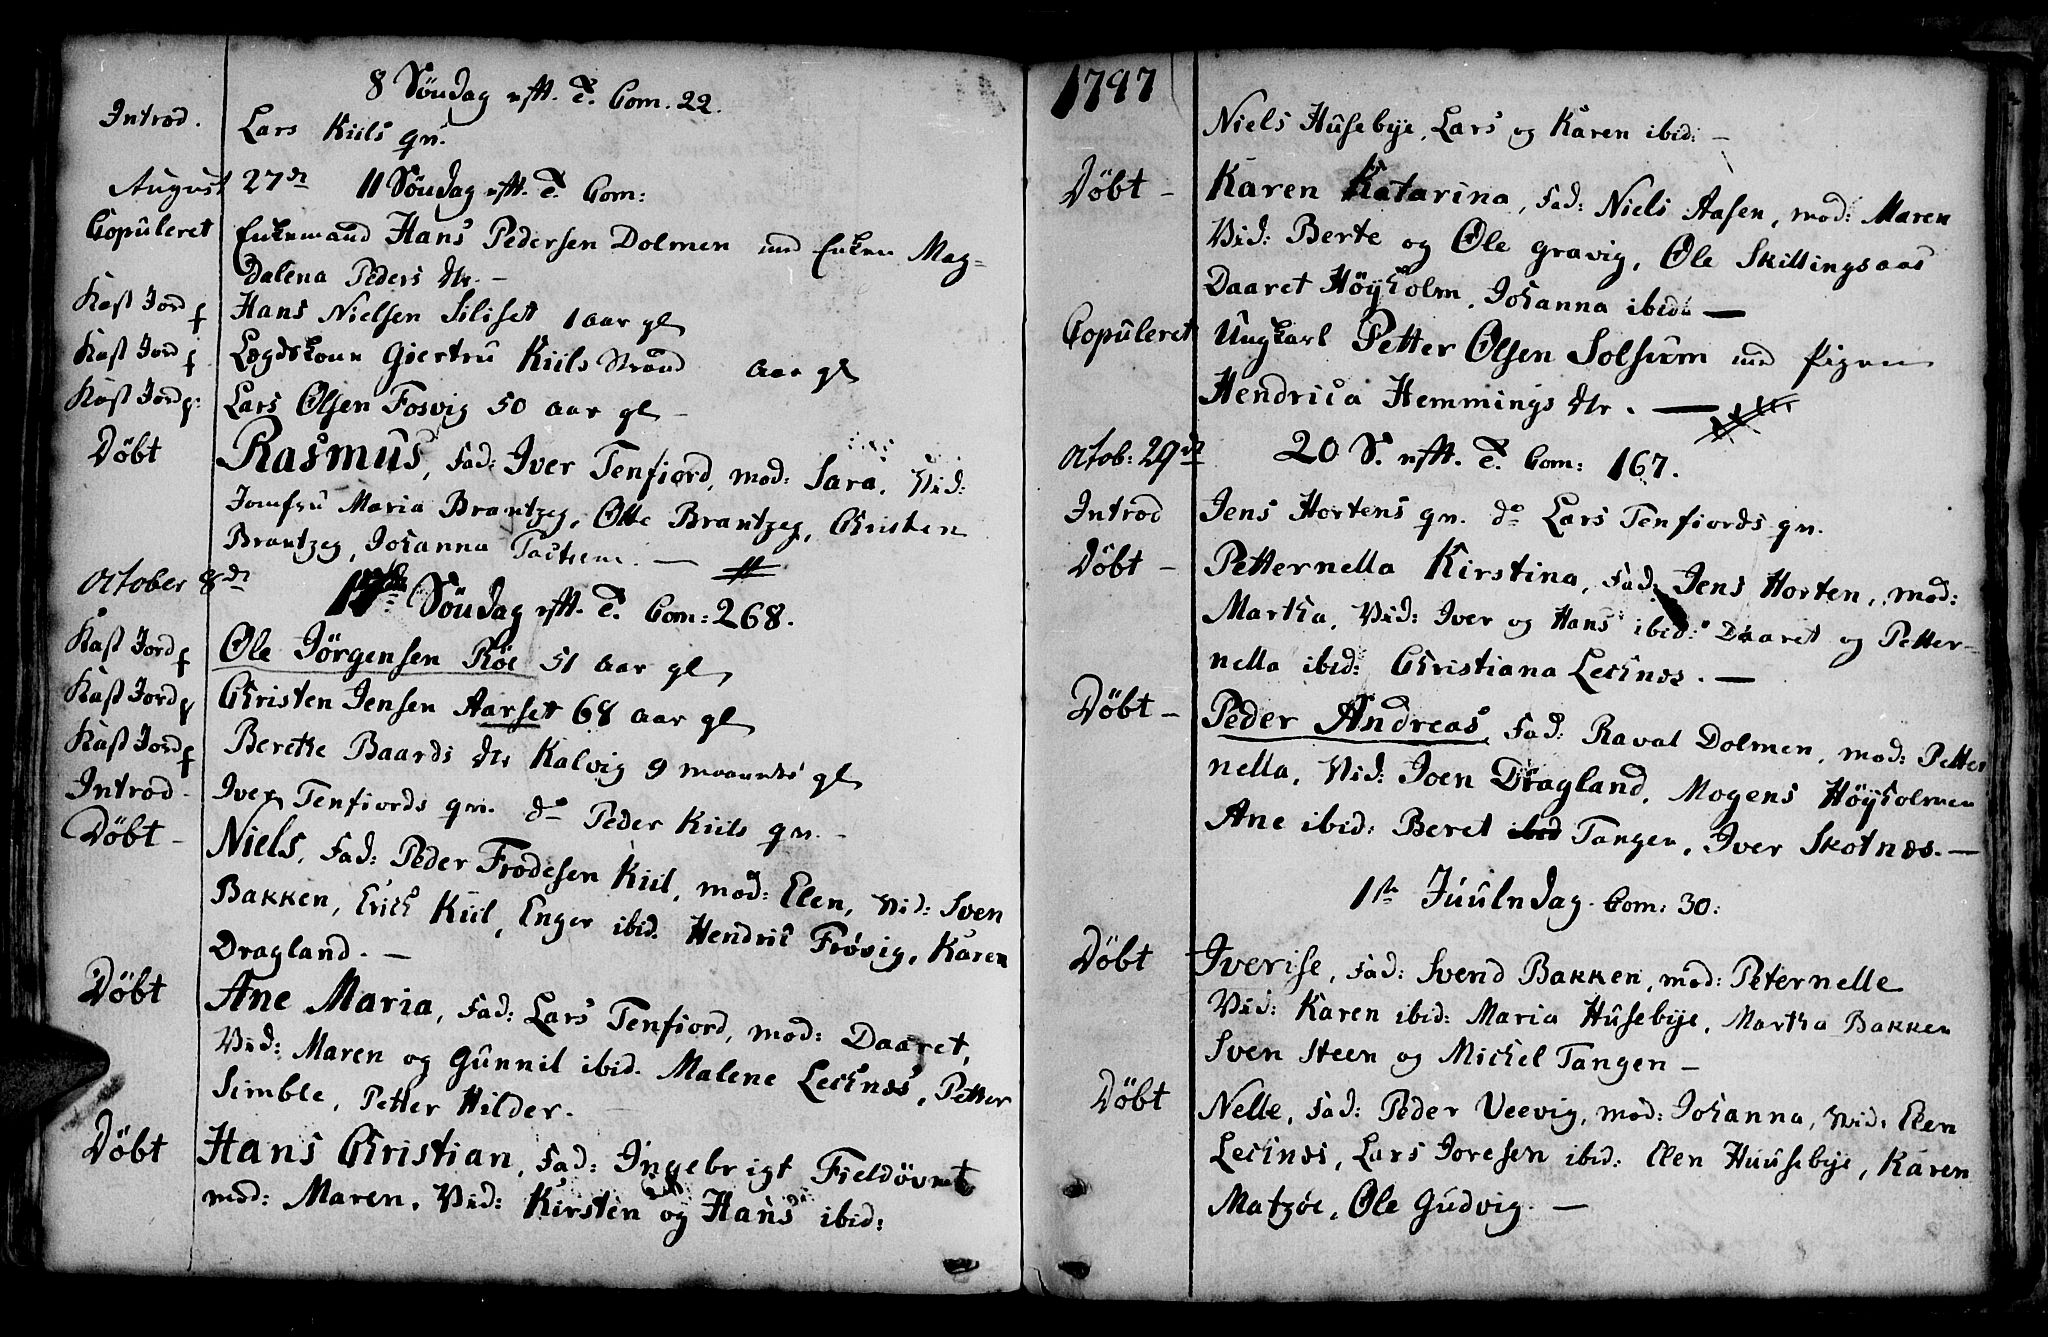 8 Søndag eft. T. Com. 22.
Introd. Lars Kiils qv.
August 27de 11 Søndag eft. T. Com:
Copuleret Enkemand Hans Pedersen Dolmen med Enken Mag-
dalena Peders dtr. —
Kast Jord p Hans Nielsen Siliset 1 aar gl
Kast Jord p Lægdskonn Giertru Kiils Strand aar gl
Kast Jord p: Lars Olsen Fosvig 50 aar gl —
Døbt Rasmus, Fad: Iver Tenfiord, mod: Sara, Vid:
Jomfru Maria Brantzeg, Otte Brantzeg, Christen
Brantzeg, Johanna —
October 8de 17de Søndag eft. T. Com: 268.
Kast Jord p Ole Jørgensen Røe 51 aar gl
Kast Jord p Christen Jensen Aarset 68 aar gl
Kast Jord p Berethe Baards dtr Kalvig 9 maaneder gl
Introd — Iver Tenfiords qv. do Peder Kiils qv. —
Døbt — Niels, Fad: Peder Frodesen Kiil, mod: Elen, Vid: Sven
Bakken, Erich Kiil, Enger ibid. Hendric Frøvig, Karen
Dragland. —
Døbt Ane Maria, Fad: Lars Tenfiord, mod: Daaret,
Vid: Maren og Gunnil ibid. Malene Lechnes, Petter
Simble, Petter Hilder.
Døbt Hans Christian, Fad: Ingebrigt Fieldøvret
mod: Maren, Vid: Kirsten og Hans ibid:
1797
Niels Husebye, Lars og Karen ibid: —
Døbt — Karen Katarina, Fad: Niels Aasen, mod: Maren
Vid: Berte og Ole Gravig, Ole Skillingsaas
Daaret Høyholm, Johanna ibid: —
Copuleret Ungkarl Petter Olsen Solsem med Pigen
Hendrica Hemmings dtr. —
Octob: 29de 20 S. eft. T. Com: 167.
Introd Jens Hortens qv. do Lars Tenfiords qv.
Døbt — Petternella Kirstina, Fad: Jens Horten, mod:
Martha, Vid: Iver og Hans ibid: Daaret og Petter-
nella ibid: Christiana Lechnes. —
Døbt — Peder Andreas, Fad: Raval Dolmen, mod: Petter
nella, Vid: Joen Dragland, Mogens Høyholmen
Ane ibid: Beret ibid Tangen, Iver Skotnes. —
1ste Juulndag. Com: 30:
Døbt Iverise, Fad: Svend Bakken, mod: Peternelle
Vid: Karen ibid: Maria Husebye, Martha Bakken
Sven Steen og Michel Tangen —
Døbt Nelle, Fad: Peder Veevig, mod: Johanna, Vid: Elen
Lechnes, Lars Joresen ibid: Elen Huusebye, Karen
Matzøe, Ole Gudvig. —